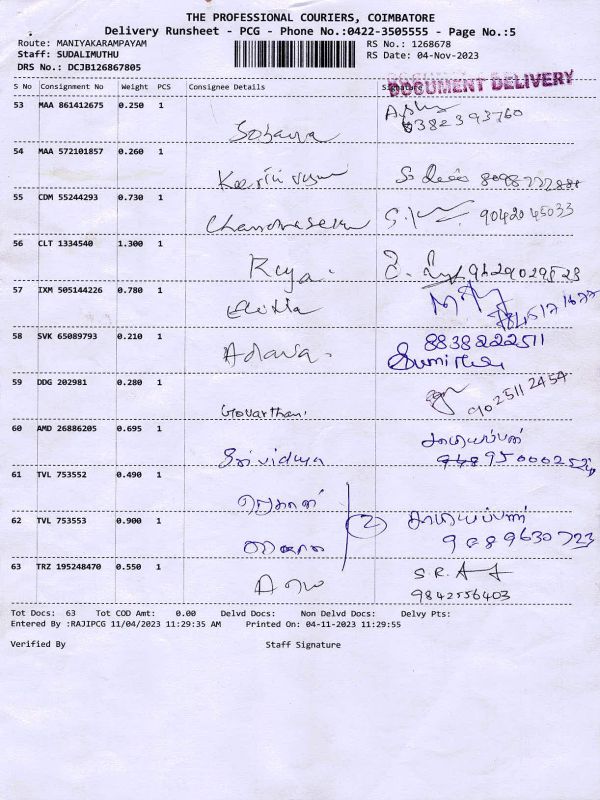 THE PROFESSIONAL COURIERS, COIMBATORE
Delivery Runsheet - PCG - Phone No.:0422-3505555 - Page No.:5
Route: MANIYAKARAMPAYAM RS No.: 1268678
Staff: SUDALIMUTHU RS Date: 04-Nov-2023
DRS No.: DCJB126867805
DOCUMENT DELIVERY
S No Consignment No Weight PCS Consignee Details Signature
53 MAA 861412675 0.250 1
6382393760
54 MAA 572101857 0.260 1
55 CDM 55244293 0.730 1
Chandrasekar 9042045033
56 CLT 1334540 1.300 1
Riya. 9629029523
57 IXM 505144226 0.780 1
58 SVK 65089793 0.210 1
8838222511
59 DDG 202981 0.280 1
Govarthan. 9025112454
60 AMD 26886205 0.695 1
Srividhya
61 TVL 753552 0.490 1
2
62 TVL 753553 0.900 1
9089630723
63 TRZ 195248470 0.550 1
S.R.
9842556403
Tot Docs: 63 Tot COD Amt: 0.00 Delvd Docs: Non Delvd Docs: Delvy Pts:
Entered By :RAJIPCG 11/04/2023 11:29:35 AM Printed On: 04-11-2023 11:29:55
Verified By Staff Signature